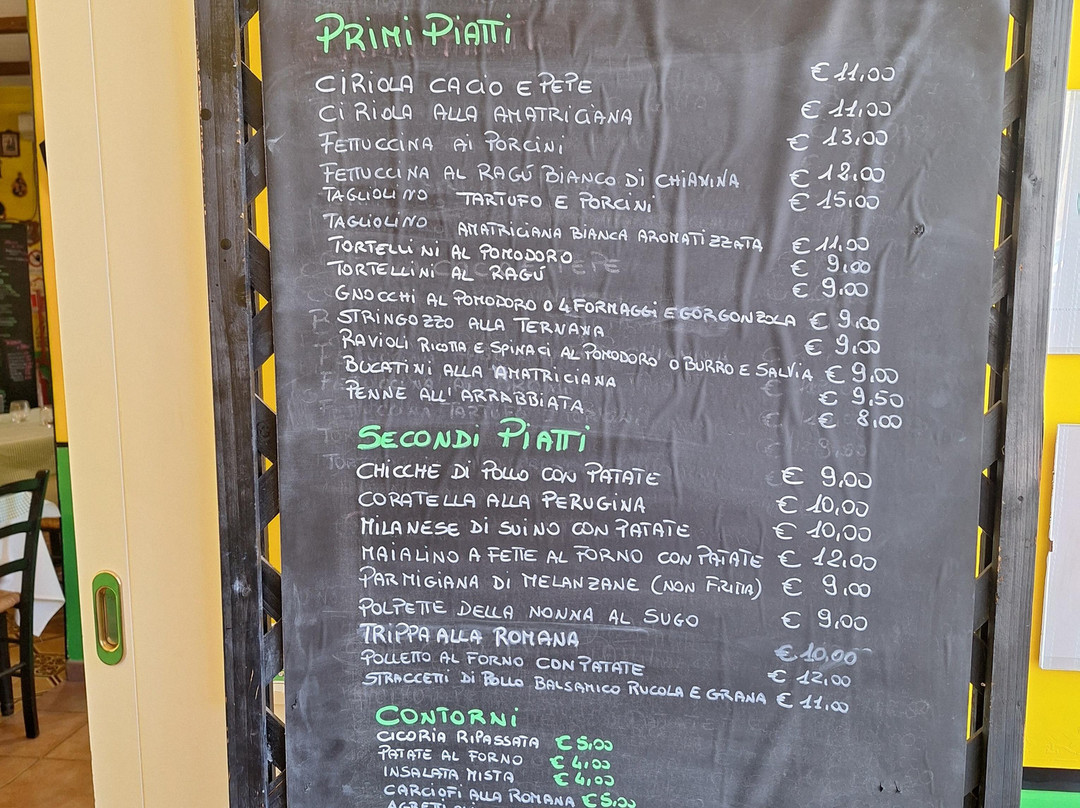 PRIMI PIATTI
CIRIOLA CACIO E PEPE € 11,00
CIRIOLA ALLA AMATRICIANA € 11,00
FETTUCCINA AI PORCINI € 13,00
FETTUCCINA AL RAGÚ BIANCO DI CHIANINA € 12,00
TAGLIOLINO TARTUFO E PORCINI € 15,00
TAGLIOLINO AMATRICIANA BIANCA AROMATIZZATA € 11,00
TORTELLINI AL POMODORO € 9,00
TORTELLINI AL RAGÚ € 9,00
GNOCCHI AL POMODORO O 4 FORMAGGI E GORGONZOLA € 9,00
STRINGOZZO ALLA TERNANA € 9,00
RAVIOLI RICOTTA E SPINACI AL POMODORO O BURRO E SALVIA € 9,00
BUCATINI ALLA AMATRICIANA € 9,50
PENNE ALL'ARRABBIATA € 8,00
SECONDI PIATTI
CHICCHE DI POLLO CON PATATE € 9,00
CORATELLA ALLA PERUGINA € 10,00
MILANESE DI SUINO CON PATATE € 10,00
MAIALINO A FETTE AL FORNO CON PATATE € 12,00
PARMIGIANA DI MELANZANE (NON FRITTA) € 9,00
POLPETTE DELLA NONNA AL SUGO € 9,00
TRIPPA ALLA ROMANA € 10,00
POLLETTO AL FORNO CON PATATE € 12,00
STRACCETTI DI POLLO BALSAMICO RUCOLA E GRANA € 11,00
CONTORNI
CICORIA RIPASSATA € 5,00
PATATE AL FORNO € 4,00
INSALATA MISTA € 4,00
CARCIOFI ALLA ROMANA € 5,00